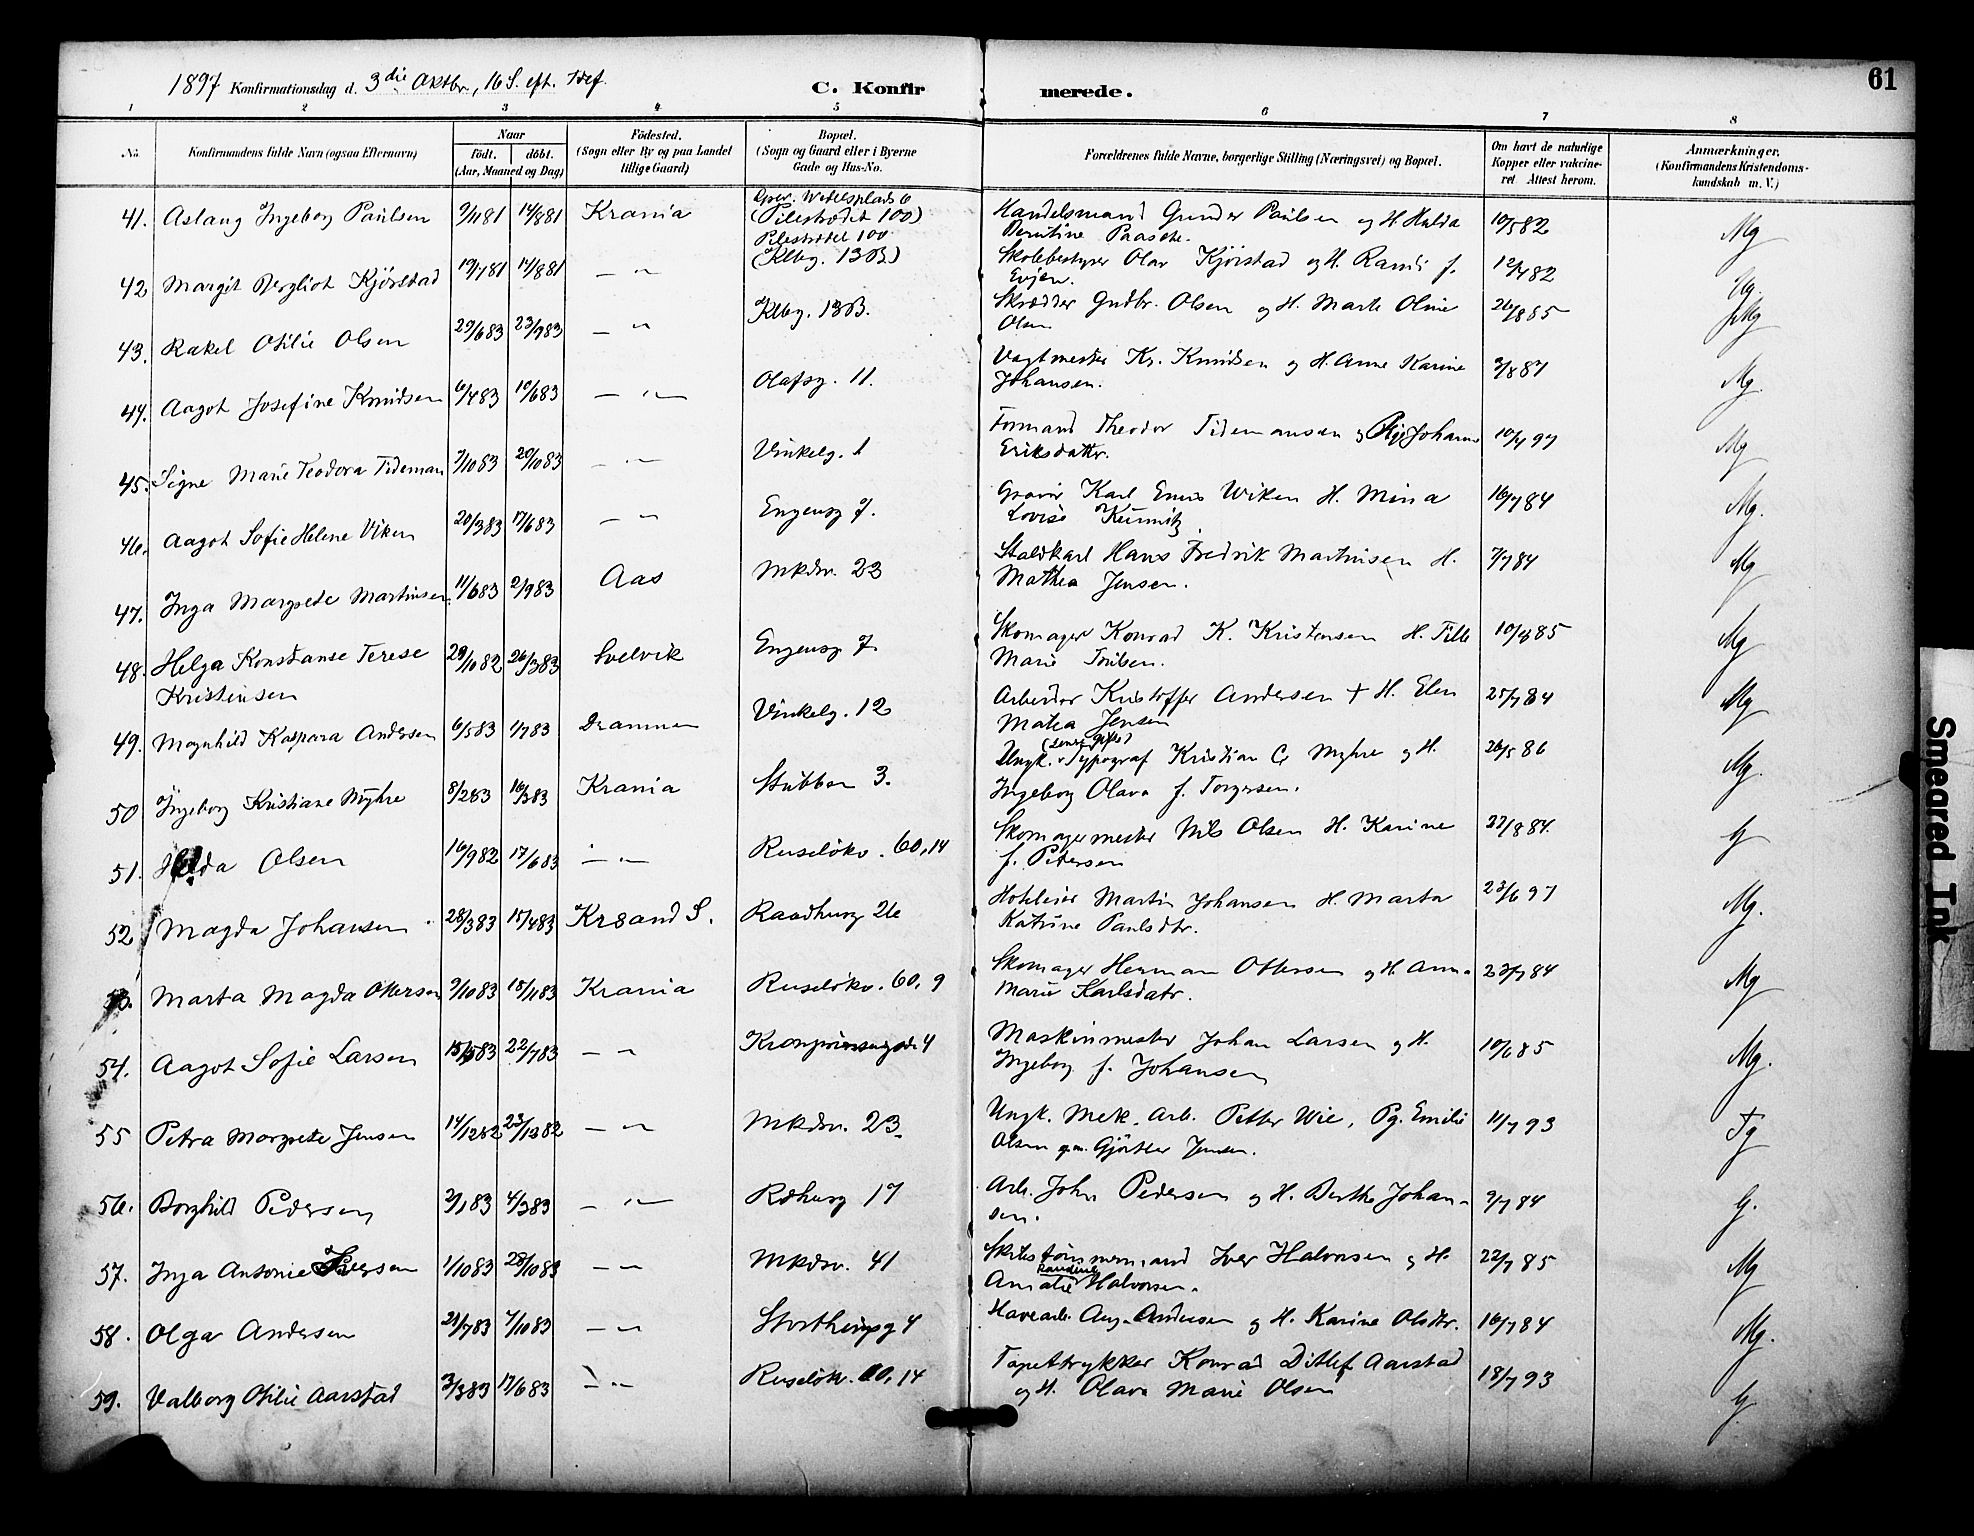 61
1897 Konfirmationsdag d. 3die Oktbr, 16 S. eft. Tref.
C. Konfirmerede.
1 2 3 4 5 6 7 8
No. Konfirmandens fulde Navn (ogsaa Efternavn) Naar födt. döbt. (Aar, Maaned og Dag) Födested. (Sogn eller By og paa Landet tillige Gaard) Bopæl. (Sogn og Gaard eller i Byerne Gade og Hus-No. Forældrenes fulde Navne, borgerlige Stilling (Næringsvei) og Bopæl. Om havt de naturlige Kopper eller vakcineret Attest herom. Anmærkninger. (Konfirmandens Kristendomskundskab m. V.)
41. Aslaug Ingeborg Paulsen 14/881 Krania (Pilestrædet 100) Handelsmand Gunder Paulsen og H. Hulda Paasche. 10/582 Mg
42 Margit Bergliot Kjörstad 19/781 14/881 — " Pilestrædet 100 (Klbg. 13B.) Skolebestyrer Olav Kjörstad og H. Randi f. Evjen. 12/482 Ug.
43. Rakel Otilie Olsen 29/683 23/983 — " Klbg. 13B. Skrædder Gudbr. Olsen og H. Marte Oline Olsen 26/885 Mg
44. Aagot Josefine Knudsen 6/483 10/683 — " — Olafsg. 11. Vagtmester Kr. Knudsen og H. Anne Karine Johansen. Mg.
45. Signe Marie Teodora Tideman 7/1083 20/1083 — " — Vinkelg. 1 Formand Theodor Tidemansen og Johanne Eriksdatter. 10/497 Mg
46. Aagot Sofie Helene Viken 20/383 17/683 — " Engensg 7. Karl Wiken H. Mina Lovise 16/784 Mg.
47. Inga Margrete Martinsen 11/683 2/983 Aas Mkdsv. 23 Staldkarl Hans Fredrik Martinsen H. Mathea Jensen. 7/784 Mg
48. Helga Konstanse Terese Kristensen 29/1082 26/383 Svelvik Engensg 7. Skomager Konrad K. Kristensen H. Marie 10/885 Mg
49. Magnhild Kaspara Andersen 6/583 1/783 Drammen Vinkelg. 12 Arbeider Kristoffer Andersen + H. Elen Matea Jensen 25/784 Mg
50 Ingeborg Kristiane Myhre 8/283 16/383 Krania Stubben 3. Ungk. (senere gifte) Typograf Kristian C Myhre og H. Ingeborg Olava f. Torgersen. 26/586 Mg.
51. Olsen 16/982 17/683 — " — Ruselökv. 60, 14 Skomagermester Nils Olsen H. Karine f. Pedersen 27/884 G
52 Magda Johansen 28/383 15/483 Krsand S. Raadhusg 26 Martin Johansen H. Marta Katrine Paulsdtr. 23/697 Mg.
53. Marta Magda Ottersen 9/1083 18/1183 Krania Ruselökv. 60, 9 Skomager Herman Ottersen og H. Anna Marie Karlsdatr. 23/784 Mg
54. Aagot Sofie Larsen 15/583 22/783 — " 4 Maskinmester Johan Larsen og H. Ingeborg f. Johansen 10/685 Mg.
55 Petra Margrete Jensen 14/1282 — " Mkdsv. 23. Ungk. Mek. Arb. Petter Wie, Pg. Emilie Olsen g.m. Jensen. 11/793 Tg
56. Borghild Pedersen 2/183 4/383 — " — Rdhusg 17 Arb. John Pedersen og H. Berthe Johansen. 9/784 G.
57. Inga Antonie Iversen 1/1083 28/1083 — " Mkdsv. 41 Skibstömmermand Iver Halvorsen og H. Halvorsen. 22/785 Mg
58. Olga Andersen 21/783 7/1083 — " Storthingsg 4 Havearb. Aug. Andersen og H. Karine Olsdtr. 16/784 Mg.
59. Valborg Otilie Aarstad 3/383 17/683 — " Ruselökv. 60, 14 Tapettrykker Konrad Ditlef Aarstad og H. Olava Marie Olsen 18/793 G
Smeared Ink